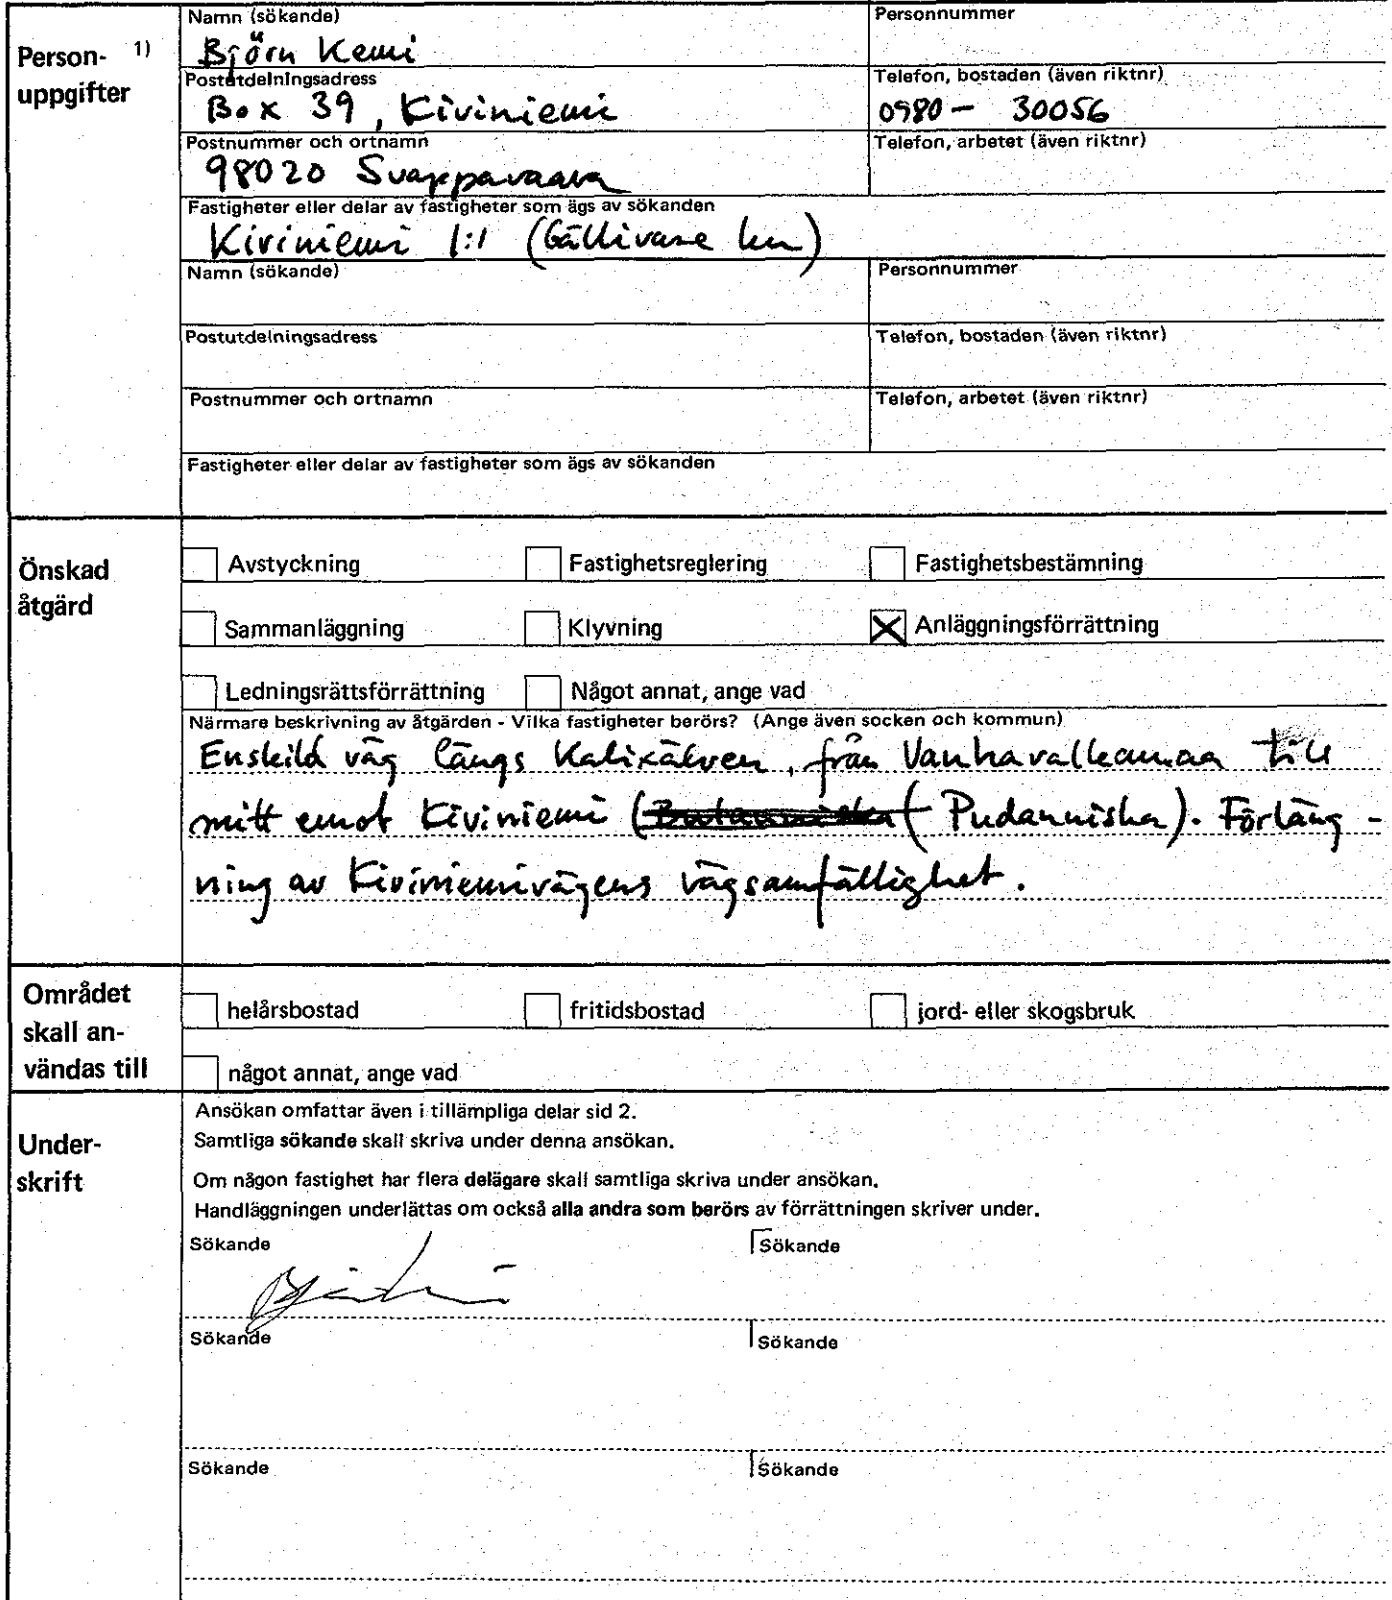 Namn (sökande)
Personnummer
Person- 1)
uppgifter
Björn Kemi
Postutdelningsadress
Telefon, bostaden (även riktnr)
Box 39, Kiviniemi
0980- 30056
Postnummer och ortnamn
Telefon, arbetet (även riktnr)
98020 Svappavaara
Fastigheter eller delar av fastigheter som ägs av sökanden
Kiviniemi 1:1 (Gällivare kn)
Namn (sökande)
Personnummer
Postutdelningsadress
Telefon, bostaden (även riktnr)
Postnummer och ortnamn
Telefon, arbetet (även riktnr)
Fastigheter eller delar av fastigheter som ägs av sökanden
Önskad
åtgärd
Avstyckning
Fastighetsreglering
Fastighetsbestämning
Sammanläggning
Klyvning
Anläggningsförrättning
Ledningsrättsförrättning
Något annat, ange vad
Närmare beskrivning av åtgärden - Vilka fastigheter berörs? (Ange även socken och kommun)
Enskild väg längs Kalixälven, från Vanhavalkamaa till
mitt emot Kiviniemi ( ( Pudanniska). Förläng-
ning av Kiviniemivägens vägsamfällighet.
Området
skall an-
vändas till
helårsbostad
fritidsbostad
jord- eller skogsbruk
något annat, ange vad
Under-
skrift
Ansökan omfattar även i tillämpliga delar sid 2.
Samtliga sökande skall skriva under denna ansökan.
Om någon fastighet har flera delägare skall samtliga skriva under ansökan.
Handläggningen underlättas om också alla andra som berörs av förrättningen skriver under.
Sökande
Sökande
Sökande
Sökande
Sökande
Sökande